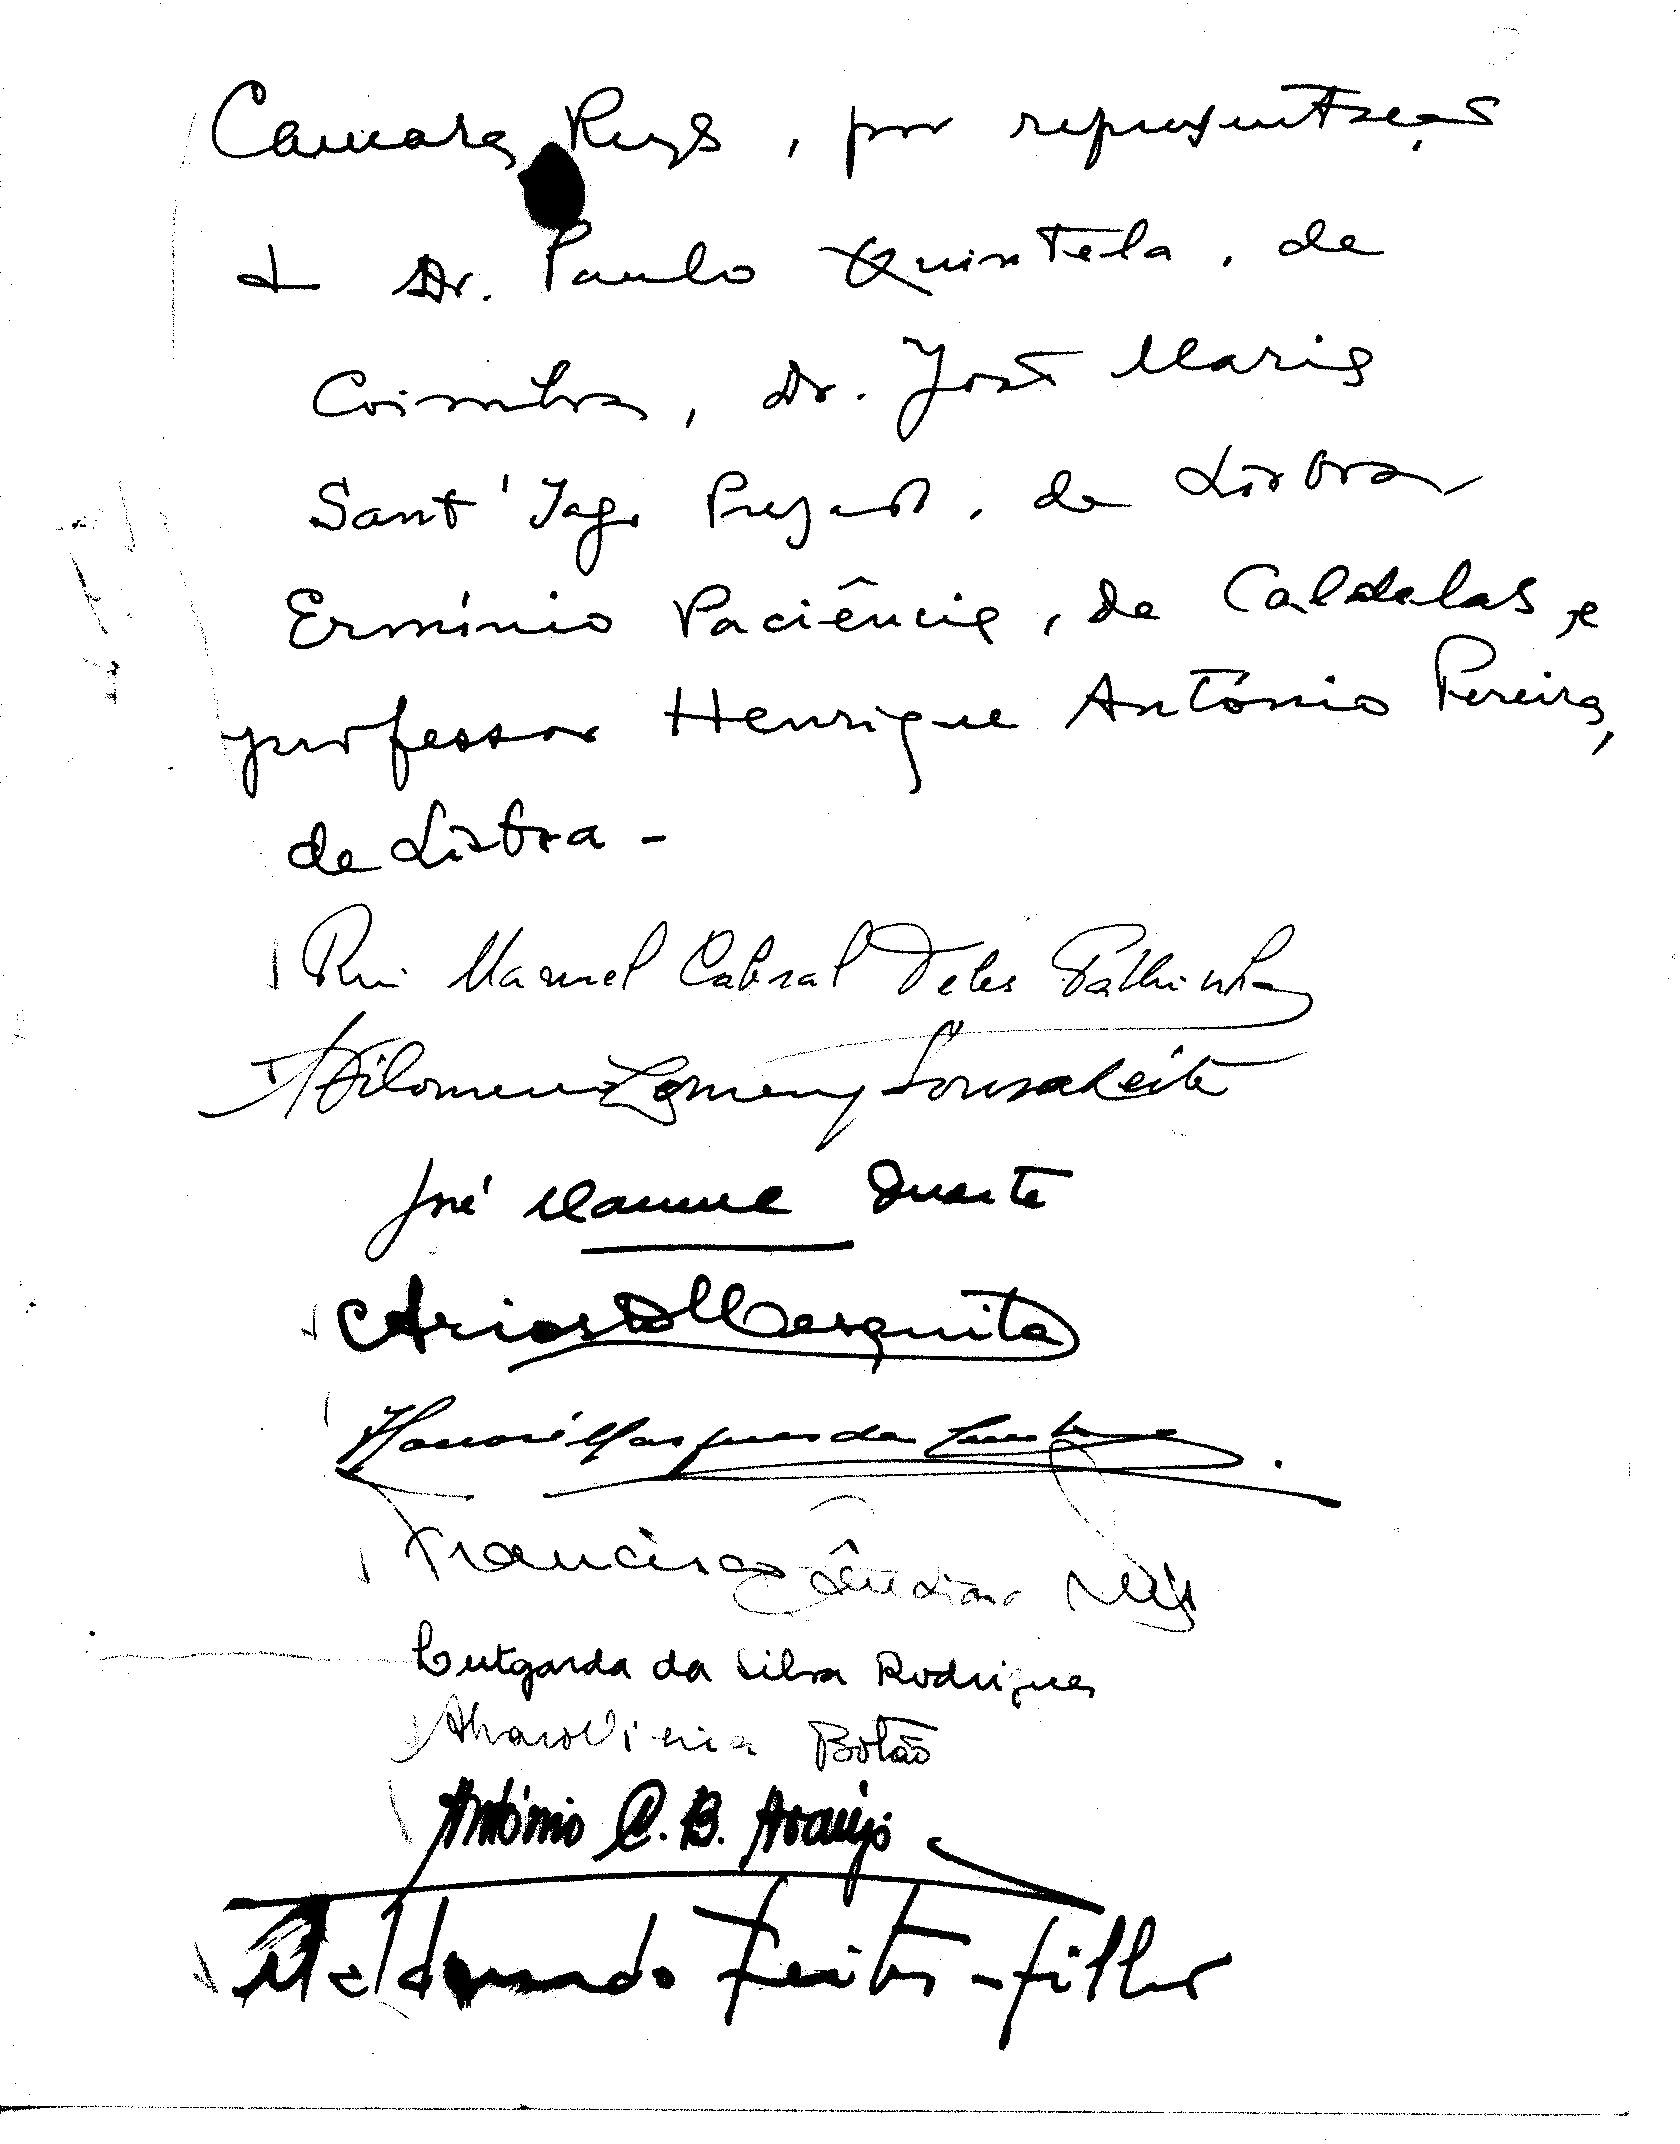 Camara Reys, por representação
d Dr. Paulo Quintela, de
Coimbra, Dr. José Maria
Sant'Iago Prezado, de Lisboa
Ermínio Paciência, de Caldelas, e
professor Henrique António Pereira,
de Lisboa -
Rui Manuel Cabral Teles Palhinha
Filomena Sousa Leite
José Manuel Duarte
Ariosto Mesquita
Honoré Marques da
Francisco
Lutgarda da Silva Rodrigues
Alvaro Vieira Botão
António C. B. Araújo
Maldonado Freitas - filho